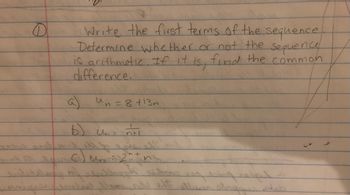 ①
Write the first terms of the sequence.
Determine whether or not the sequence
is arithmetic. If it is, find the common
difference.
a) Un = 8 + 13n
b) Un = 1/n+1
c) Un = 2^n + n